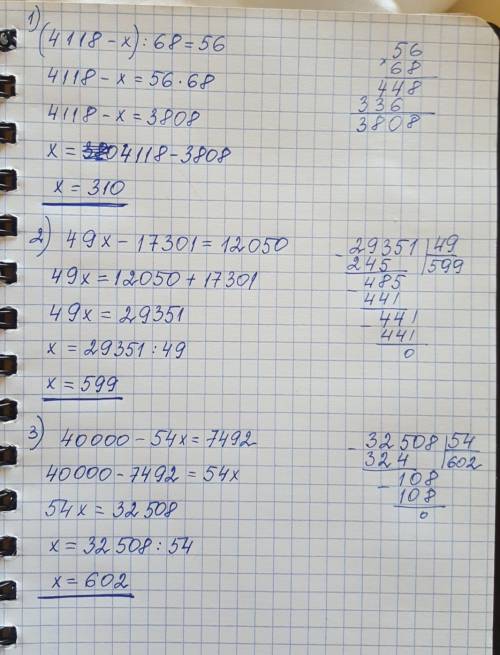 1) (4118 - x) : 68 = 56
4118 - x = 56 · 68
4118 - x = 3808
x = 4118 - 3808
x = 310
56
× 68
448
336
3808
2) 49x - 17301 = 12050
49x = 12050 + 17301
49x = 29351
x = 29351 : 49
x = 599
- 29351 | 49
245 | 599
- 485
441
- 441
441
0
3) 40000 - 54x = 7492
40000 - 7492 = 54x
54x = 32508
x = 32508 : 54
x = 602
- 32508 | 54
324 | 602
- 108
108
0